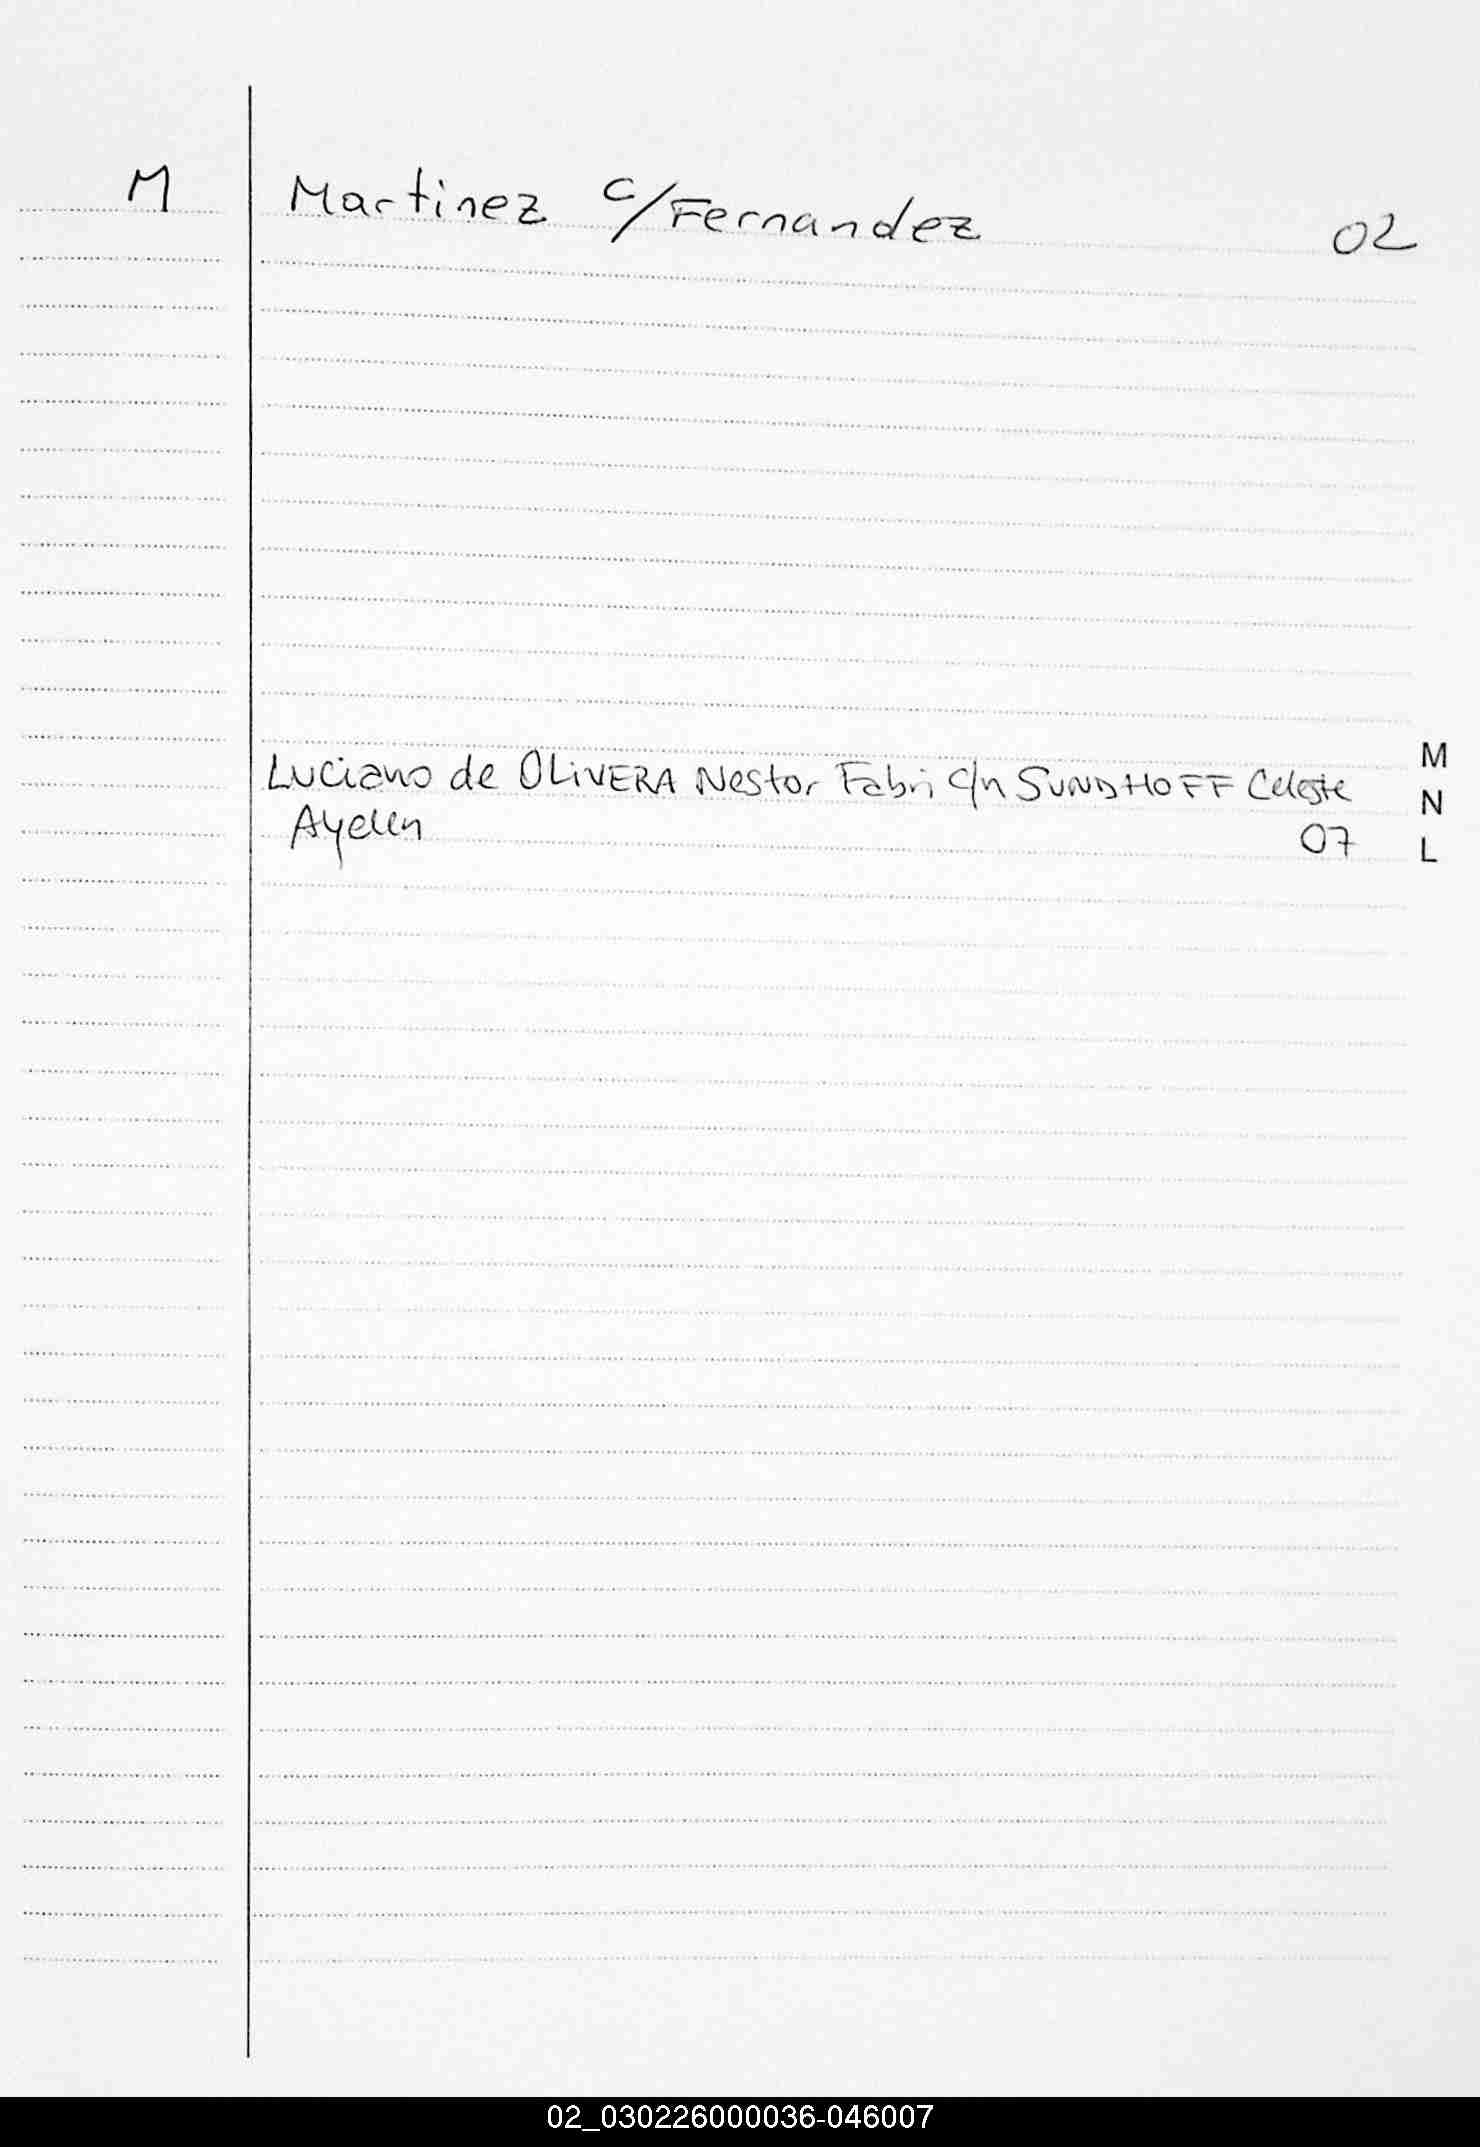 M Martinez c/Fernandez 02
Luciano de OLIVERA Nestor Fabri c/n SUNDHOFF Celeste
Ayelen 07
M
N
L
02_030226000036-046007